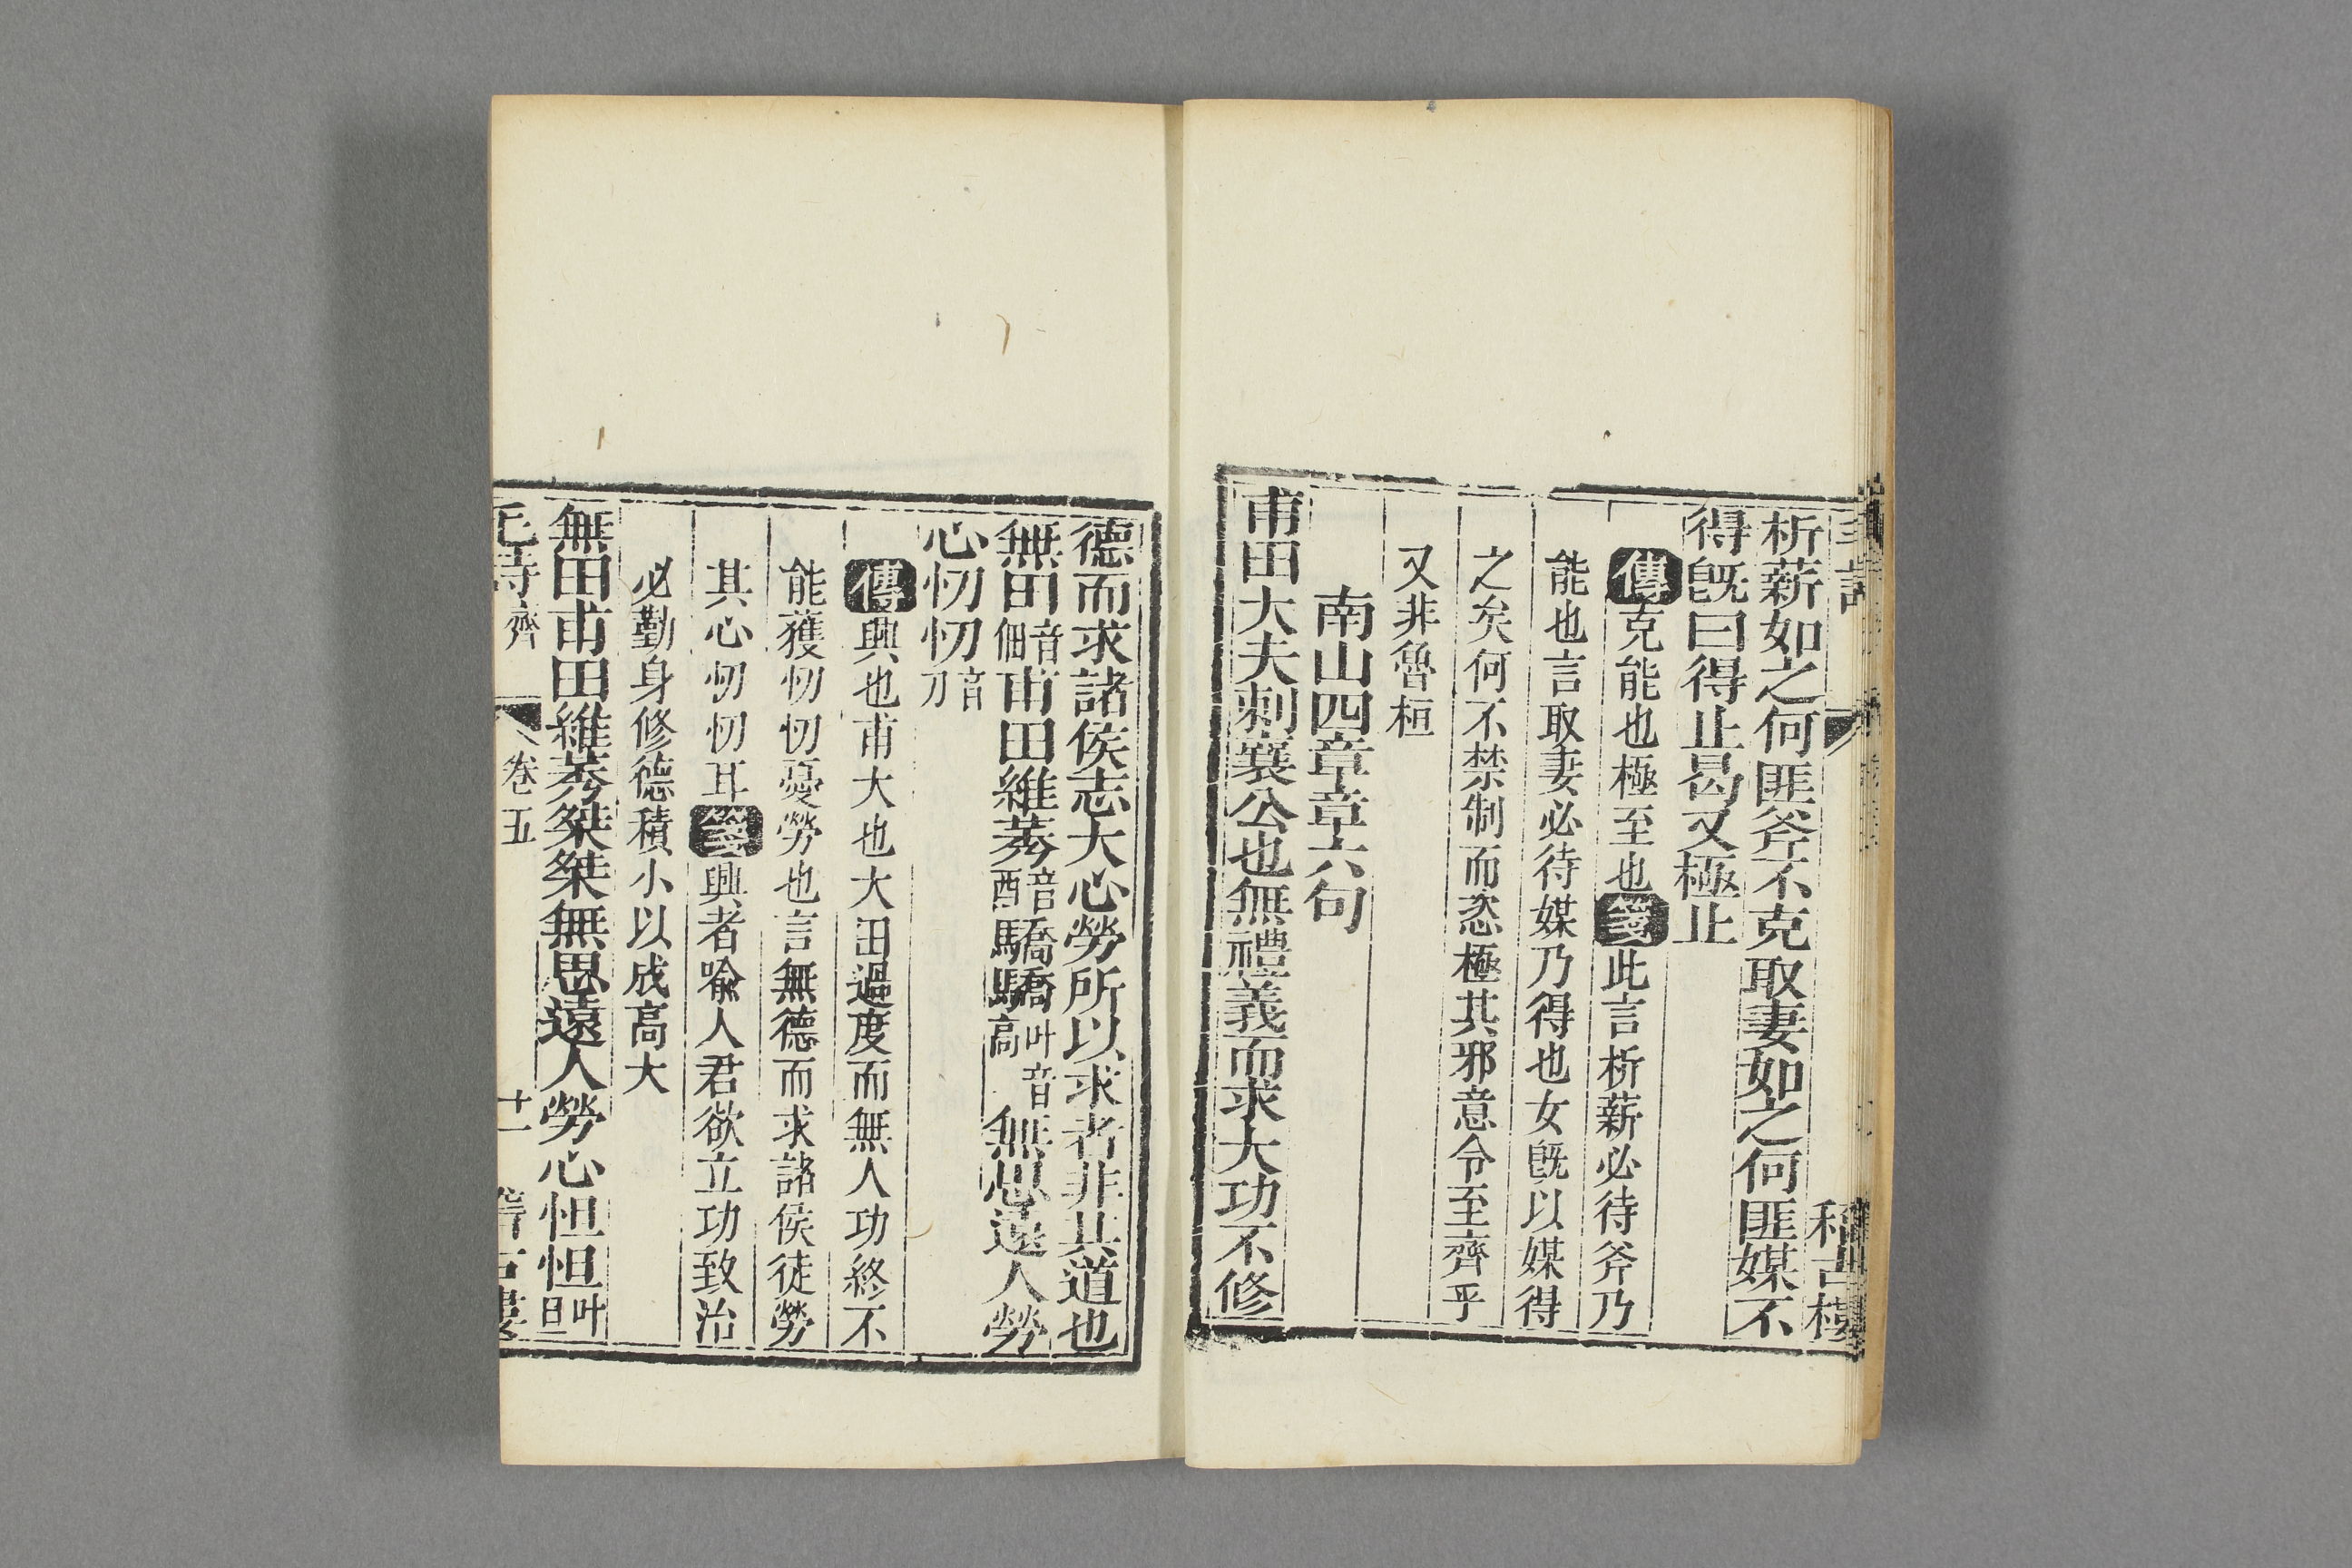 析薪如之何匪斧不克取妻如之何匪媒不
得旣曰得止曷又極止
傳克能也極至也箋此言析薪必待斧乃
能也言取妻必待媒乃得也女旣以媒得
之矣何不禁制而恣極其邪意令至齊乎
又非魯桓
南山四章章六句
甫田大夫刺襄公也無禮義而求大功不修
德而求諸侯志大心勞所以求者非其道也
無田音佃甫田維莠音酉驕驕叶音高無思遠人勞
心忉忉音刀
傳興也甫大也大田過度而無人功終不
能獲忉忉憂勞也言無德而求諸侯徒勞
其心忉忉耳箋興者喩人君欲立功致治
必勤身修德積小以成高大
無田甫田維莠桀桀無思遠人勞心怛怛叶旦
毛詩齊 卷五 十一